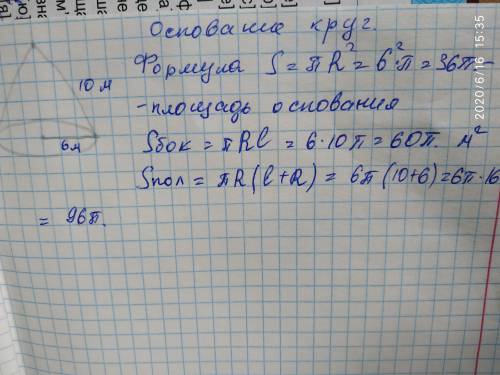 Основание круг.
Формула S = πR² = 6²·π = 36π –
10 м
– площадь основания
6м
Sбок = πRl = 6·10π = 60π. м²
Sпол = πR(l+R) = 6π(10+6)=6π·16
= 96π.
2020/6/16 15:35